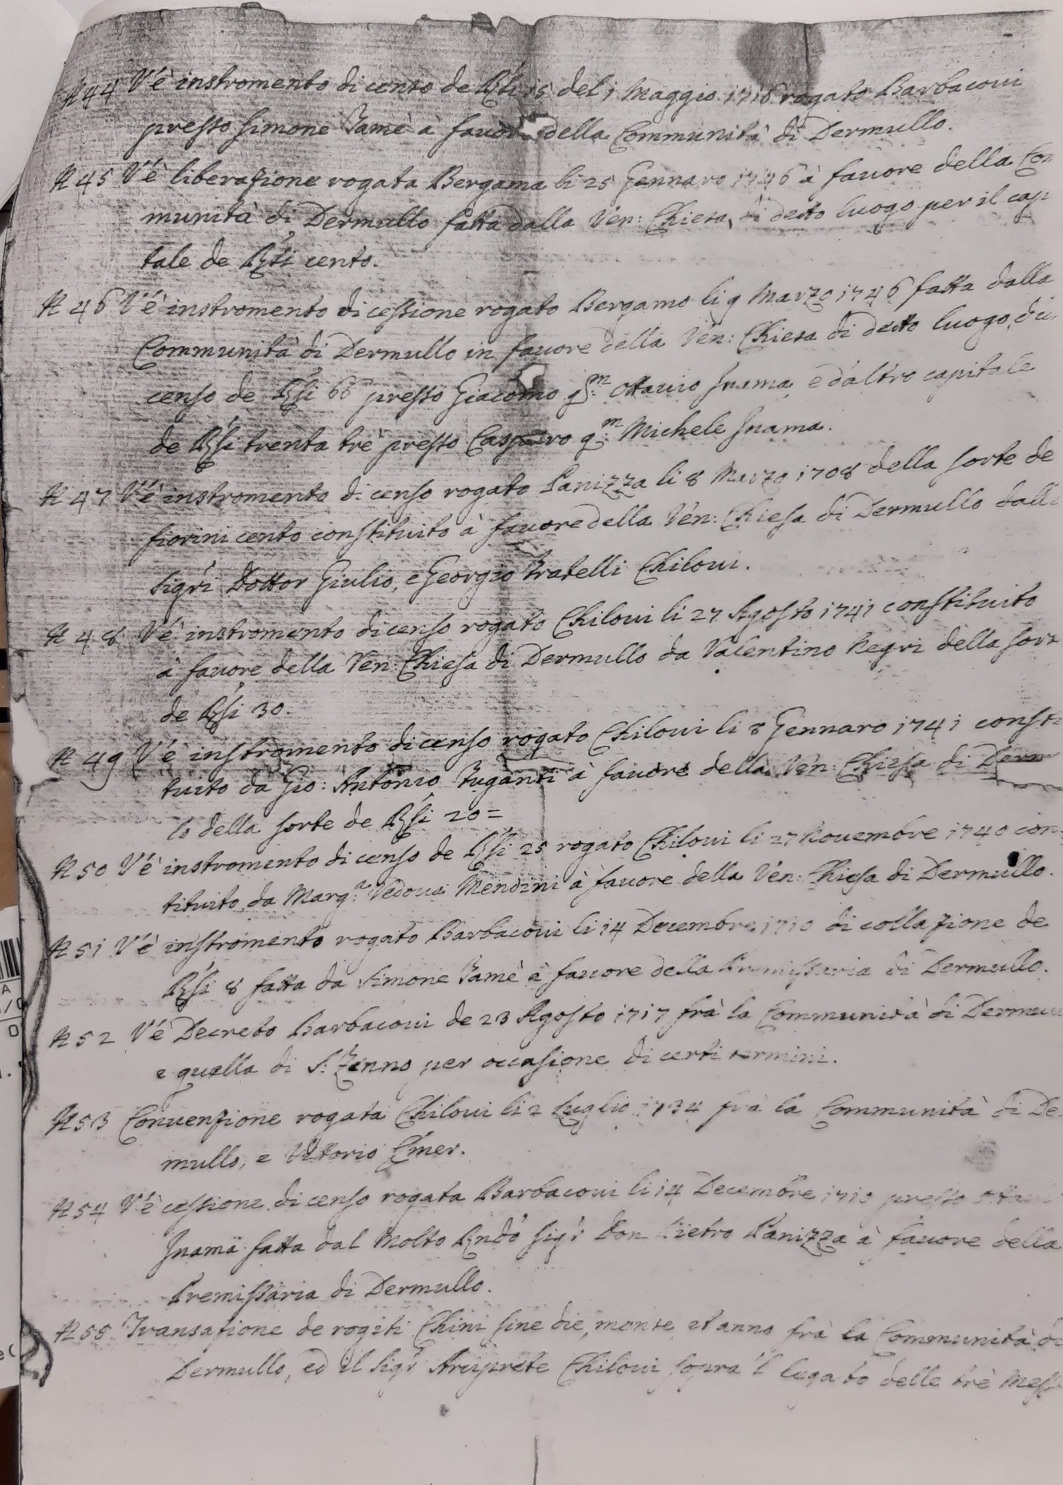 N 44 V'è instromento di censo de Rsi 15 del 1 Maggio 1716 rogato Barbacovi
presso Simone Tamè à favor della Communità di Dermullo.
N 45 V'è liberazione rogata Bergama li 25 Gennaro 1746 à favore della Co
munità di Dermullo fatta dalla Ven: Chiesa di detto luogo per il capi
tale de Rsi cento.
N 46 V'è instromento di cessione rogato Bergamo li 9 Marzo 1746 fatta dalla
Communità di Dermullo in favore della Ven: Chiesa di detto luogo, d'u
censo de Rsi 66 presso Giacomo qm Ottavio Inama, e d'altro capitale
de Rsi trenta trè presso Casparo qm Michele Inama.
N 47 V'è instromento di censo rogato Panizza li 8 Marzo 1708 della sorte de
fiorini cento constituito à favore della Ven: Chiesa di Dermullo dalli
Sigri Dottor Giulio, e Georgio Fratelli Chilovi.
N 48 V'è instromento di censo rogato Chilovi li 27 Agosto 1741 constituito
à favore della Ven: Chiesa di Dermullo da Valentino Negri della sort
de Rsi 30.
N 49 V'è instromento di censo rogato Chilovi li 8 Gennaro 1741 consti
tuito da Gio: Antonio à favore della Ven: Chiesa di Derm
lo della sorte de Rsi 20=
N 50 V'è instromento di censo de Rsi 25 rogato Chilovi li 27 Novembre 1740 con
tituito da Margta Vedova Mendini à favore della Ven: Chiesa di Dermullo.
N 51 V'è instromento rogato Barbacovi li 14 Decembre 1710 di collazione de
Rsi 8 fatta da Simone Tamè à favore della Premissaria di Dermullo.
N 52 V'è Decreto Barbacovi de 23 Agosto 1717 frà la Communità di Dermu
e quella di S. Zenno per occasione di certi termini.
N 53 Convenzione rogata Chilovi li 2 Luglio 1734 frà la Communità di De
mullo, e Vittorio Emer.
N 54 V'è cessione di censo rogata Barbacovi li 14 Decembre 1710 presso Ottav
Inama fatta dal Molto Rndo Sigr Don Pietro Panizza à favore della
Premissaria di Dermullo.
N 55 Transazione de rogiti Chini sine die, mense, et anno frà la Communità d
Dermullo, ed il Sigr Arciprete Chilovi sopra 'l legato delle trè Mess